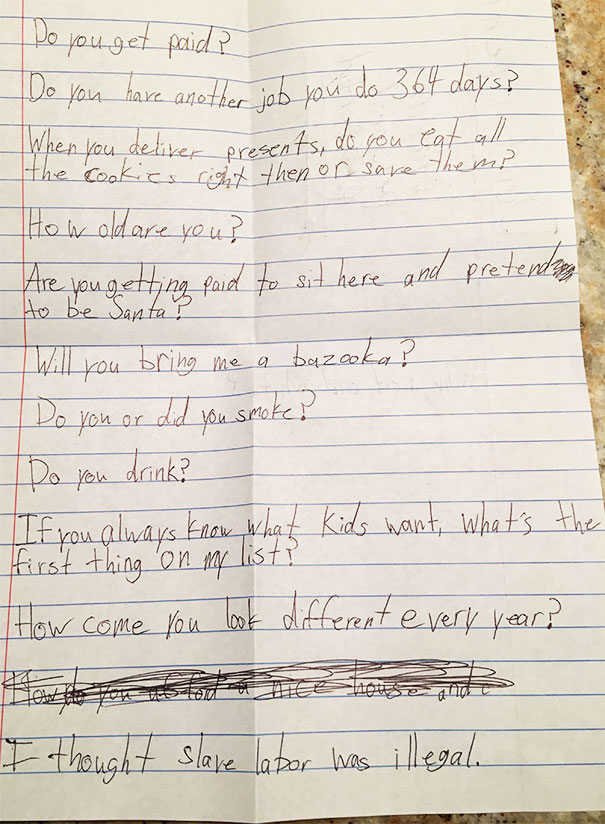 Do you get paid?
Do you have another job you do 364 days?
When you deliver presents, do you eat all
the cookies right then or save them?
How old are you?
Are you getting paid to sit here and pretend
to be Santa?
Will you bring me a bazooka?
Do you or did you smoke?
Do you drink?
If you always know what kids want, what's the
first thing on my list?
How come you look different every year?
How do you afford a nice house and
I thought slave labor was illegal.